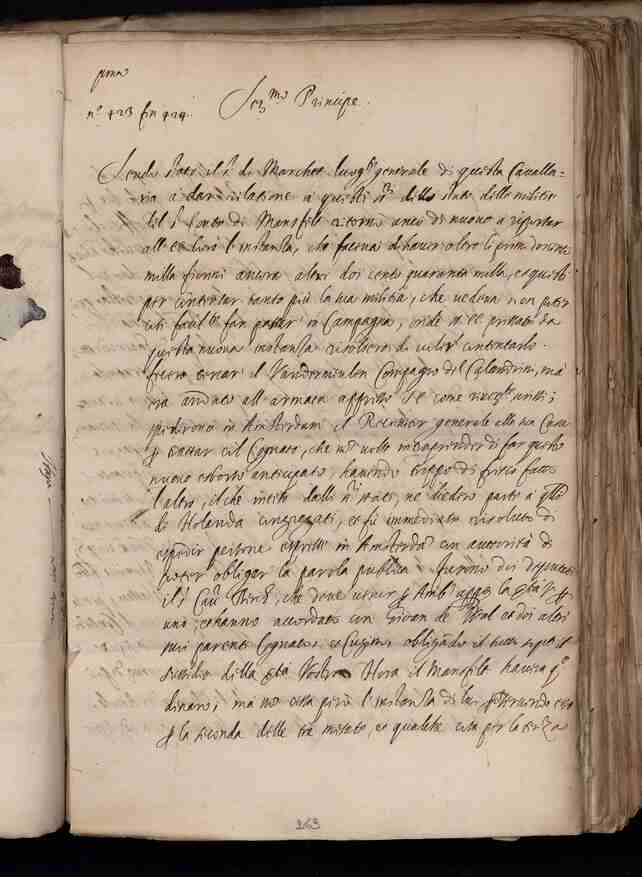 prima
n.º 423 fin 424.
Ser.mo Principe.
Sendo stato il s.r di Marchet luog.te generale di questa Cavalla=
ria à dar relatione à questi ss.ri dello stato delle militie
del s.r Conte di Mansfelt ritornò anco di nuovo a riportar
all' l'instanza, che faceva di haver oltre li primi
milla fiorini ancora altri doi cento quaranta milla, et questi
per contentar tanto più la sua militia, che vedeva non poter
così facilm.te far passar in Campagna,
questa nuova instanza risolsero di voler contentarlo.
fecero cercar il Vandermeulen Compagno del Calandrini, mà
era andato all' armata come scritto;
spedirono in Amsterdam il Recivier generale alla sua Casa
à trattar col Cognato, che non volle intraprender di far questo
nuovo esborso anticipato, havendo troppo di fresco fatto
l'altro, il che inteso dalli ss.ri stati, ne diedero parte à q.lli
de Holanda congregati, et fù immediate risoluto di
espedir persone espresse in Amsterdã con auttorità di
poter obligar la parola publica furono doi deputati
il s.r Cau.r che deve venir p Amb.r la
uno; et hanno accordato con Giovan de Wal et doi altri
suoi parenti Cognato, et Cugino obligando il tutto sopra il
sussidio della Vostra Hora il Mansfelt haverà q.o
dinaro; mà non cessa però l'instanza di lui
p la seconda delle trè mesate, et qualche cosa per la terza
263